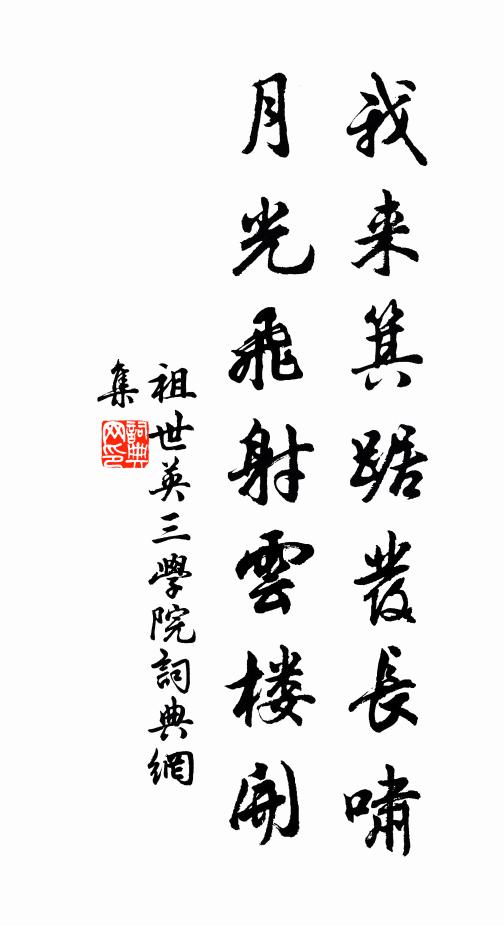 我来箕踞發長嘯
月光飛射雲楼開
祖世英三學院詞典網
集
詞典網印